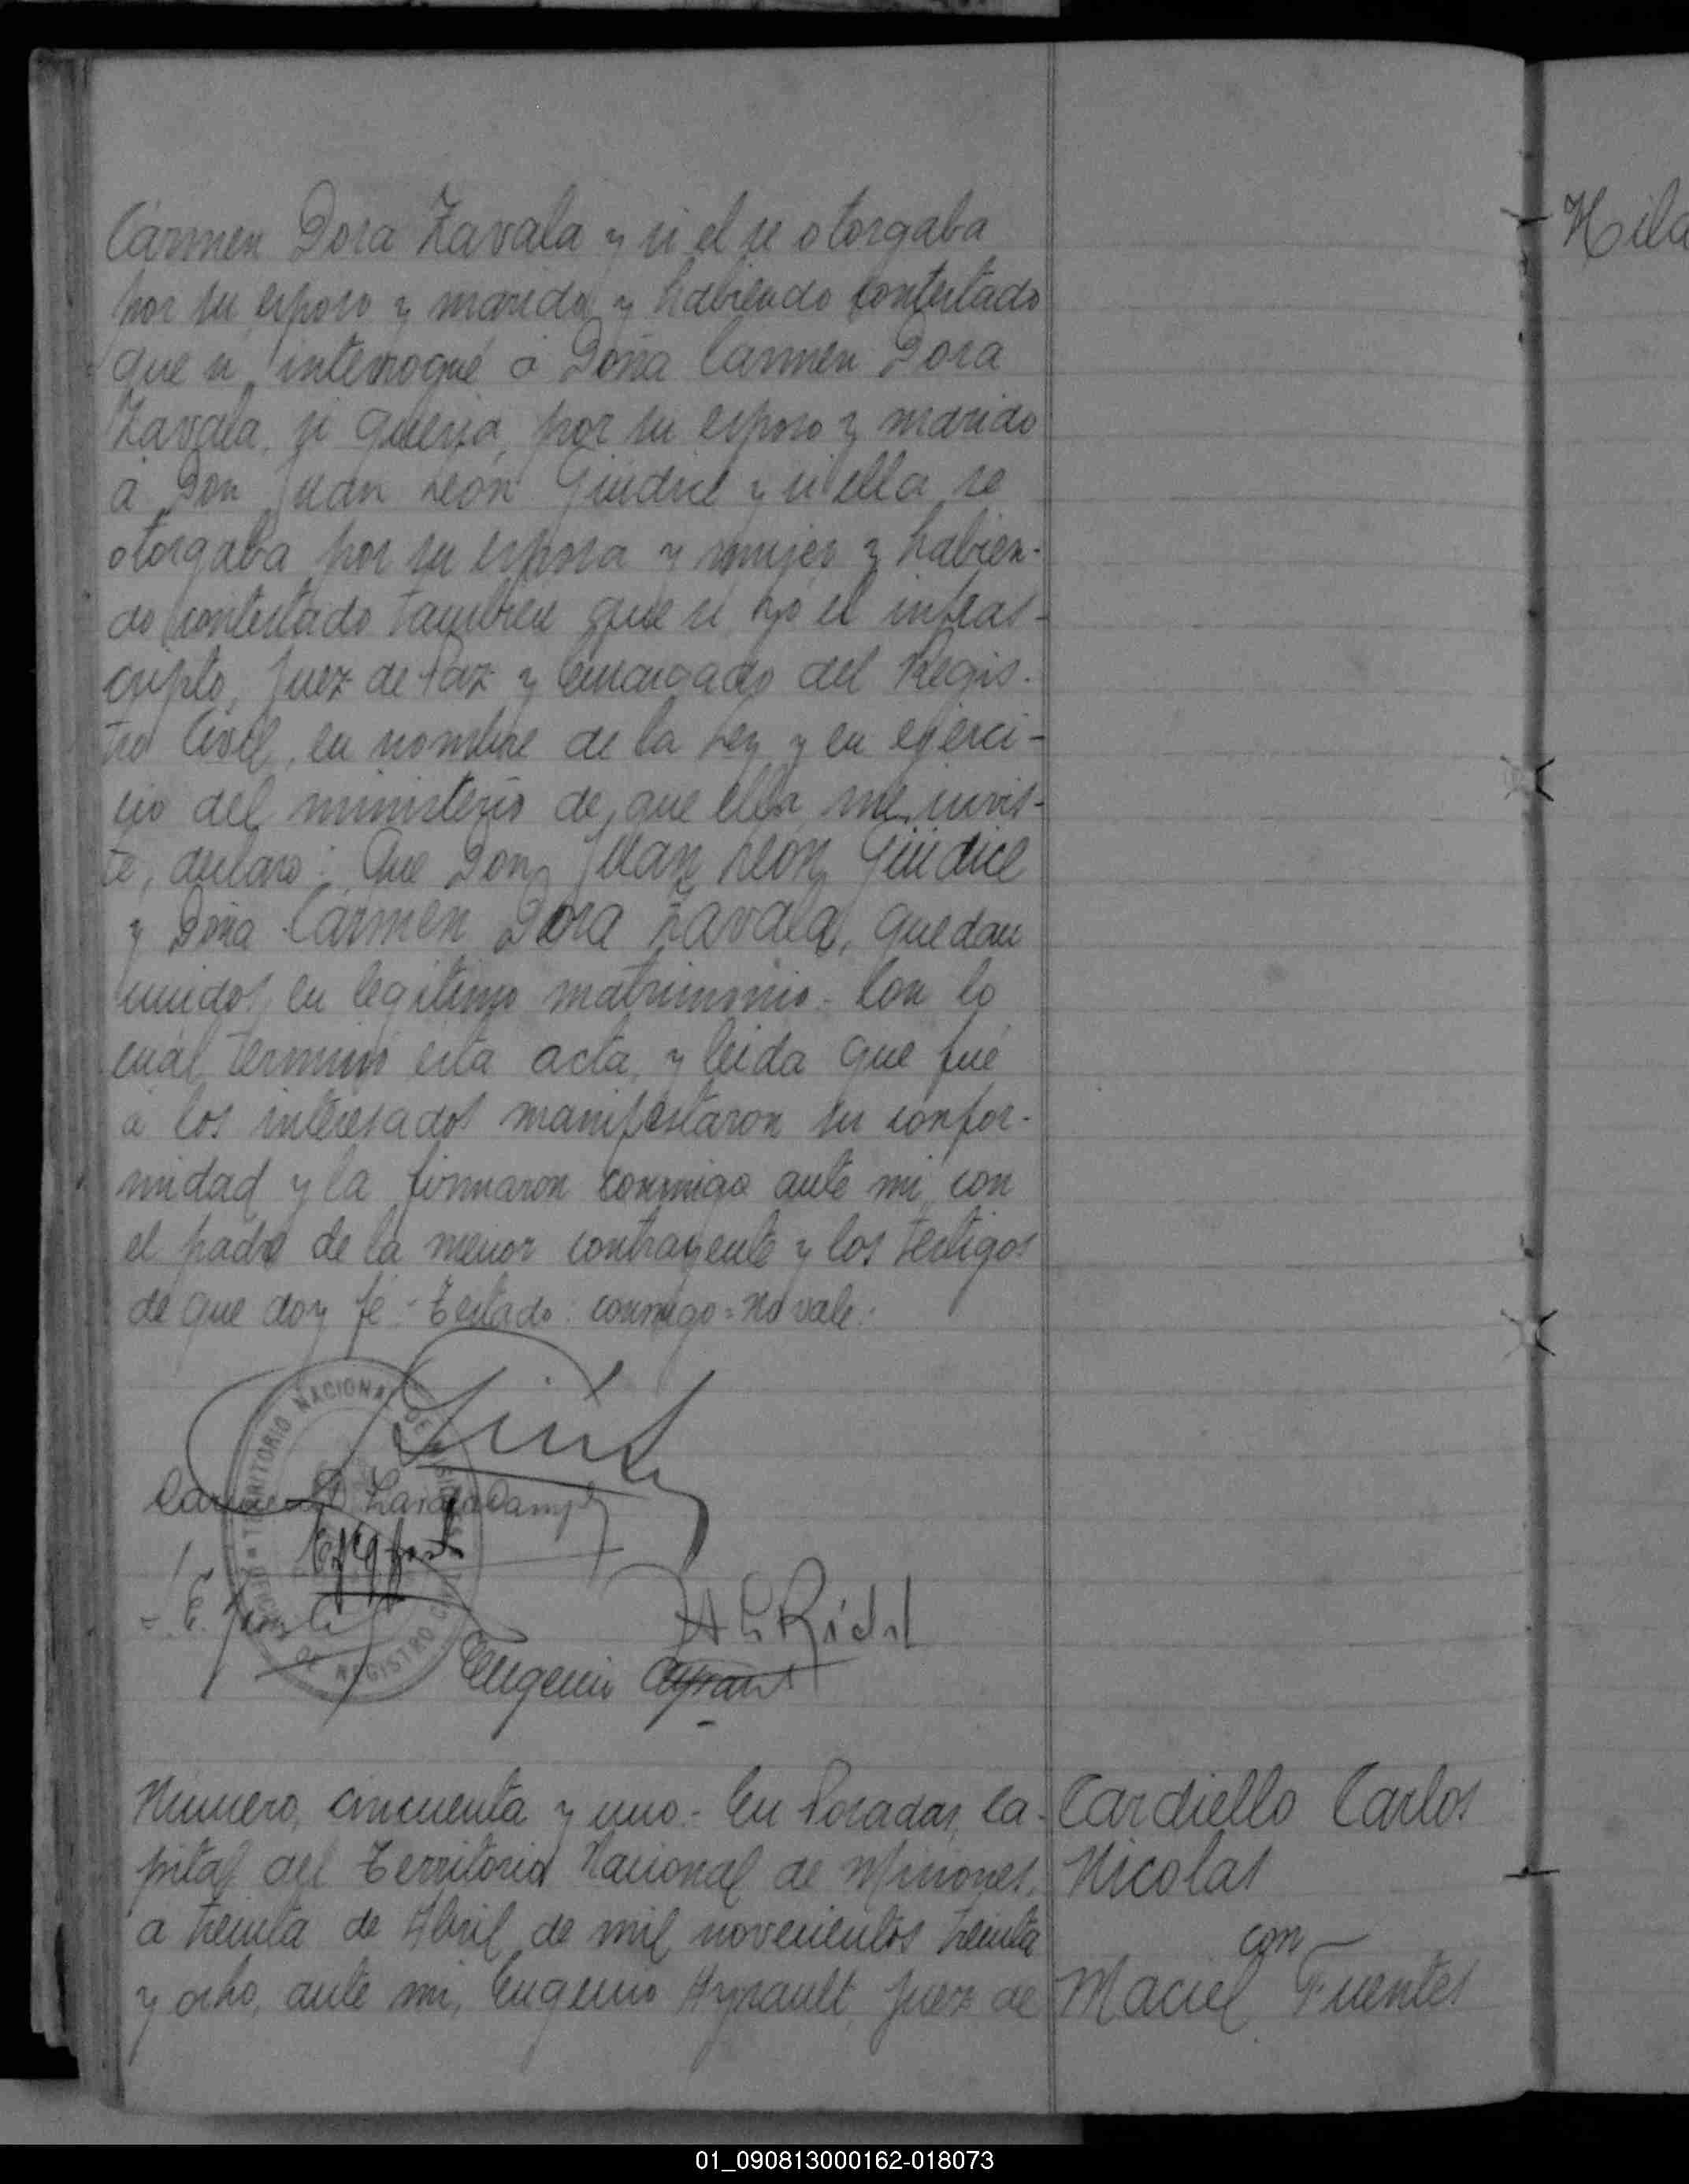 Cármen Dora Zavala y si el se otorgaba
por su esposo y marido y habiendo contestado
que si, interrogué á Doña Carmen Dora
Zavala, si queria, por su esposo y marido
á Don Juan León Giudice y si ella se
otorgaba por su esposa y mujer y habien-
do contestado tambien que si yo el infras-
cripto, Juez de Paz y Encargado del Regis-
tro Civil, en nombre de la Ley y en ejerci-
cio del ministerio de que ella me invis-
te, declaro: Que Don Juan León Giudice
y Doña Cármen Dora Zavala, quedan
unidos en legítimo matrimonio.- Con lo
cual terminó esta acta, y leida que fué
á los interesados manifestaron su confor-
midad y la firmaron conmigo ante mi, con
el padre de la menor contrayente y los testigos
de que doy fé.- Testado: conmigo=no vale.-
TERRITORIO NACIONAL DE MISIONES
DE REGISTRO CIVIL
Carmen D Zavala
Eugenio Ayrault
Número, cincuenta y uno.- En Posadas, Ca-
pital del Territorio Nacional de Misiones,
a treinta de Abril de mil novecientos treinta
y ocho, ante mi, Eugenio Ayrault, Juez de
Cardiello Carlos
Nicolas
con
Maciel Fuentes
Hila
01_090813000162-018073